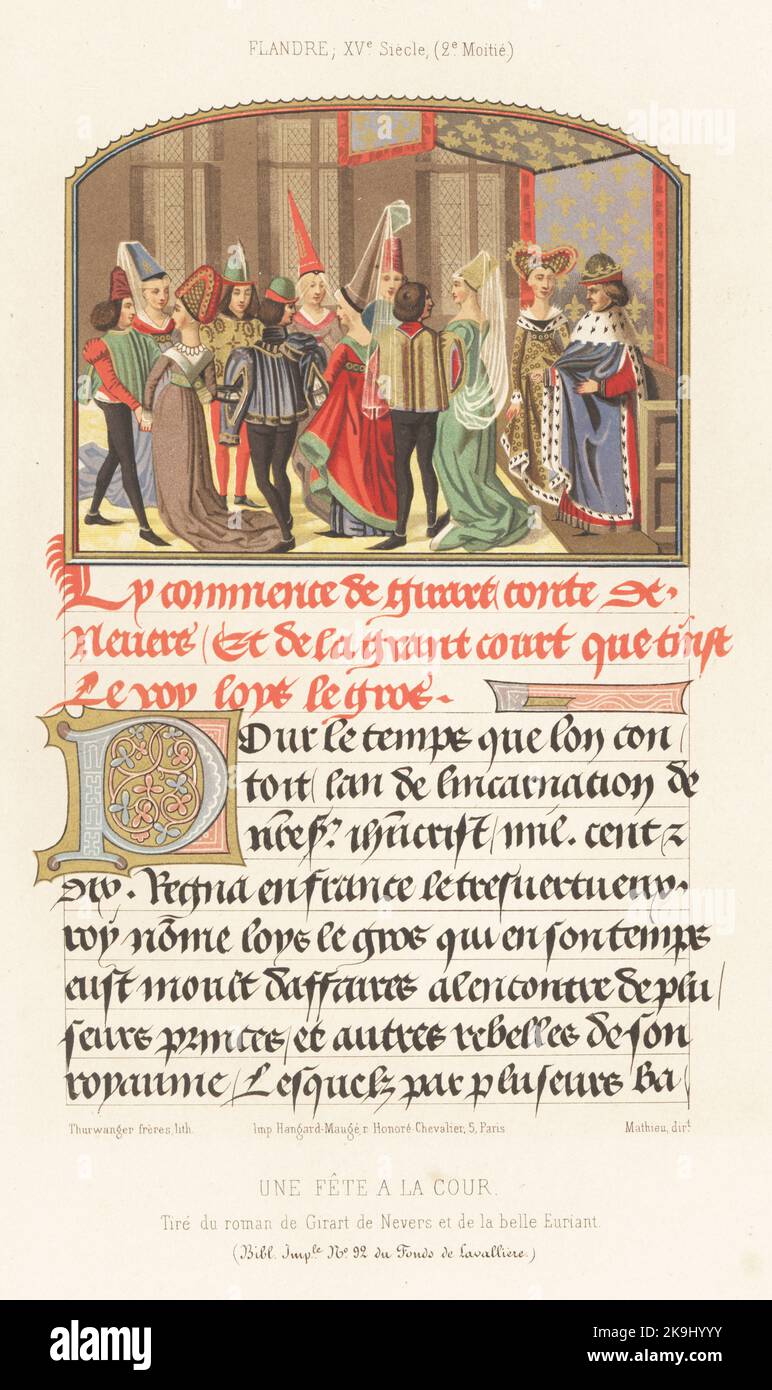 FLANDRE, XVe Siècle, (2e Moitié)
Cy commence de girart conte de
Nevers / Et de la grant court que tinst
Le roy loys le gros.
POur le temps que lon con/
toit / lan de lincarnation de
nre sr. ihucrist / mil. cent z
dix. Regna en france le tresvertueux.
roy nōme loys le gros qui en son temps
eust moult daffaires alencontre de plu/
seurs princes / et autres rebelles de son
royaume / Lesquelz par pluseurs ba/
Thurwanger frères, lith.
Imp Hangard-Maugé, r Honoré-Chevalier, 5, Paris
Mathieu, dirt.
UNE FÊTE A LA COUR.
Tiré du roman de Girart de Nevers et de la belle Euriant.
(Bibl. Imple No. 92 du Fonds de Lavallière.)
alamy
Image ID: 2K9HYYY
www.alamy.com